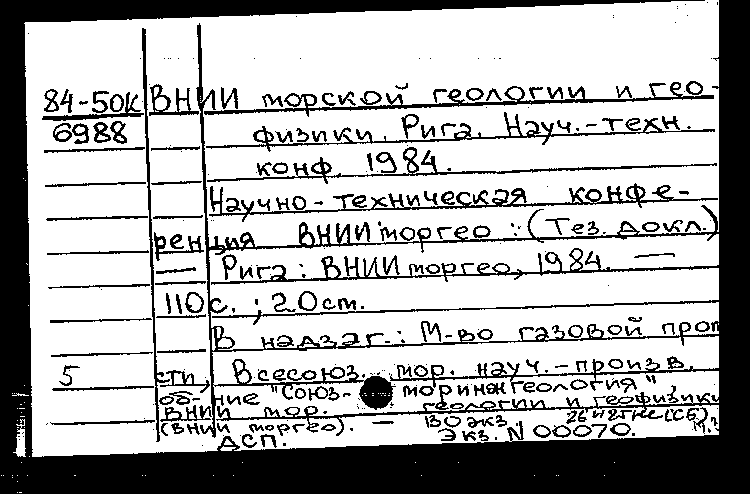 84-50К ВНИИ морской геологии и гео-
6988 физики. Рига. Науч.-техн.
конф. 1984.
Научно-техническая конфе-
ренция ВНИИморгео : (Тез. докл.)
— Рига : ВНИИморгео, 1984. —
110 с. ; 20 cm.
В надзаг.: М-во газовой пром
5 сти, Всесоюз. мор. науч.-произв.
об-ние "Союз- моринжгеология",
ВНИИ мор. геологии и геофизики
(ВНИИ моргео). — 130 экз.
ДСП. Экз. N 00070.